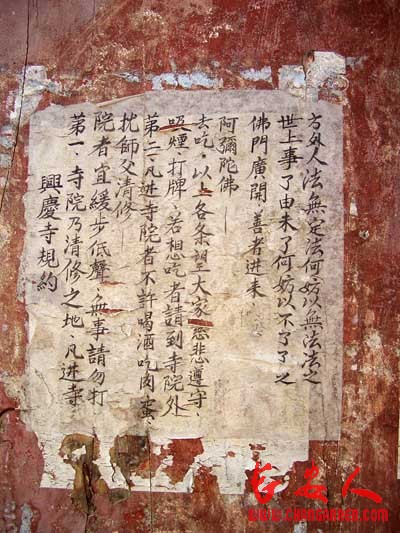 興慶寺規約
第一、寺院乃清修之地、凡进寺
院者宜緩步低聲、無事請勿打
扰師父清修
第二、凡进寺院者不許喝酒吃肉、葷、
吸煙、打牌、若想吃者請到寺院外
去吃。以上各条望大家慈悲遵守、
阿彌陀佛
佛門廣開、善者进来
世上事了由未了何妨以不了了之
方外人法無定法何妨以無法法之
长安人